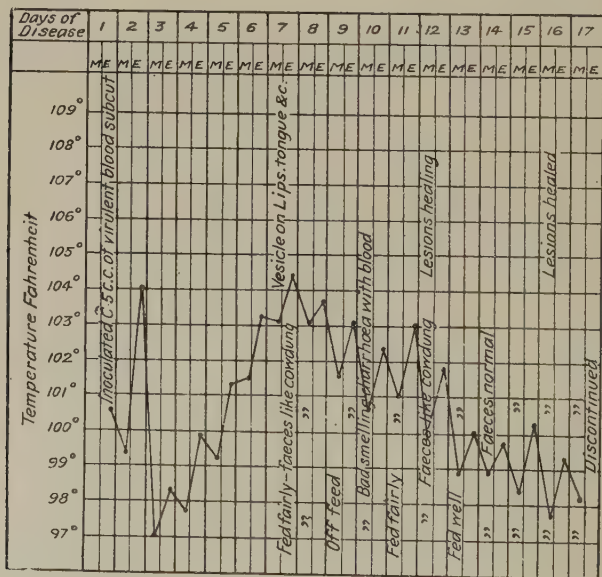 Days of Disease 1 2 3 4 5 6 7 8 9 10 11 12 13 14 15 16 17
M E M E M E M E M E M E M E M E M E M E M E M E M E M E M E M E M E
Temperature Fahrenheit
109°
108°
107°
106°
105°
104°
103°
102°
101°
100°
99°
98°
97°
Inoculated C 5 c.c. of virulent blood subcut
Vesicle on Lips. tongue &c.
Fed fairly - faeces like cowdung
"
"
Off feed
"
Bad smelling diarrhoea with blood
"
"
Fed fairly
Lesions healing
Faeces like cowdung
"
"
Fed well
Faeces normal
"
"
"
Lesions healed
"
"
"
"
Discontinued